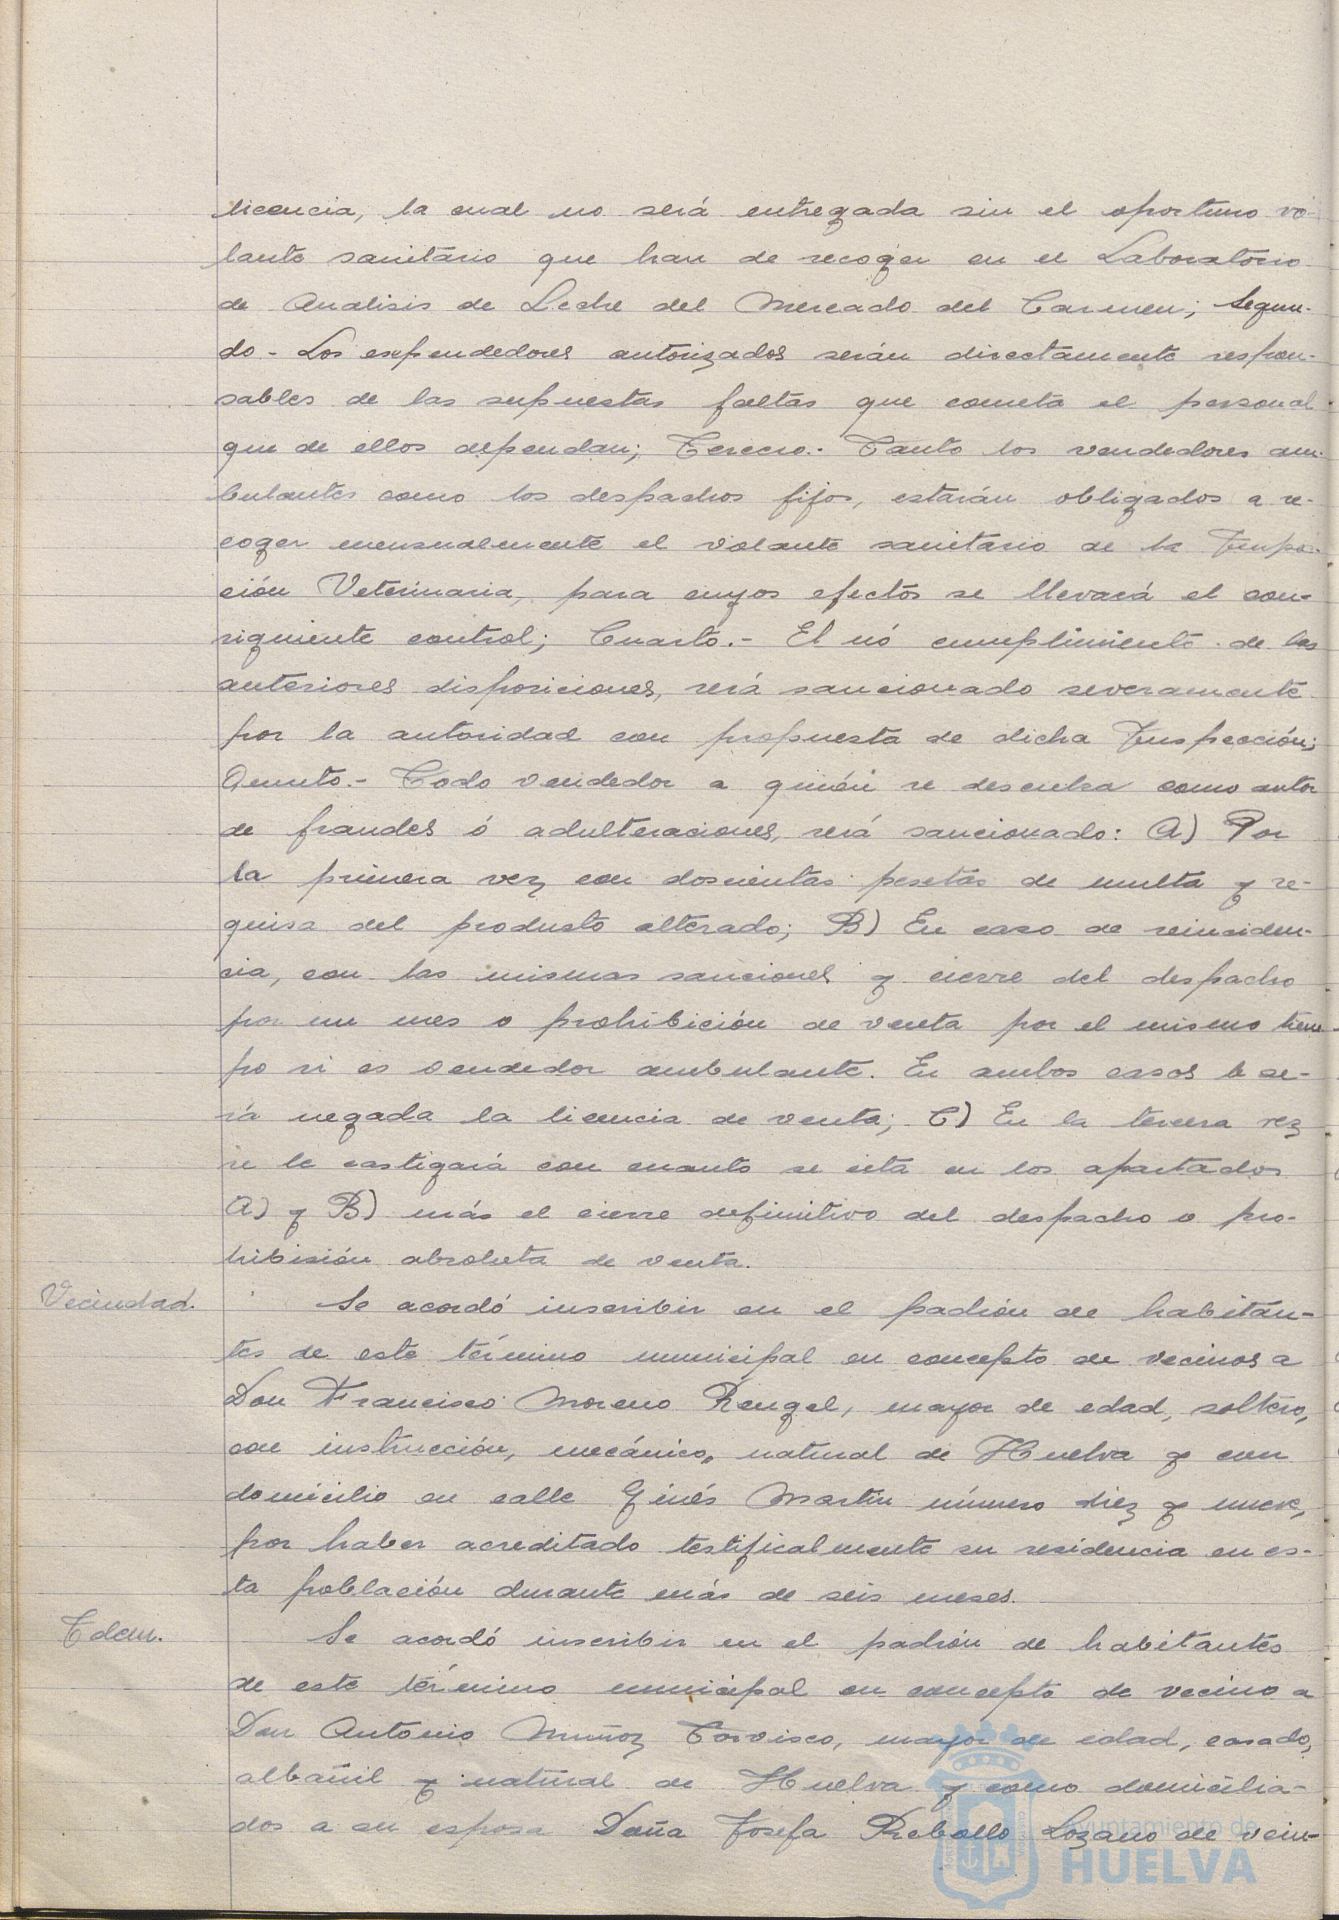 licencia, la cual no será entregada sin el oportuno vo-
lante sanitario que han de recoger en el Laboratorio
de Analisis de Leche del Mercado del Carmen; Segun-
do - Los expendedores autorizados serán directamente respon-
sables de las supuestas faltas que cometa el personal
que de ellos dependan; Tercero.- Tanto los vendedores am-
bulantes como los despachos fijos, estarán obligados a re-
coger mensualmente el volante sanitario de la Inspec-
ción Veterinaria, para cuyos efectos se llevará el con-
siguiente control; Cuarto.- El nó cumplimiento de las
anteriores disposiciones, será sancionado severamente
por la autoridad con propuesta de dicha Inspección;
Quinto.- Todo vendedor a quién se descubra como autor
de fraudes ó adulteraciones, será sancionado: A) Por
la primera vez con doscientas pesetas de multa y re-
quisa del producto alterado; B) En caso de reinsiden-
cia, con las mismas sanciones y cierre del despacho
por un mes o prohibición de venta por el mismo tiem-
po si es vendedor ambulante. En ambos casos le se-
rá negada la licencia de venta; C) En la tercera vez
se le castigará con cuanto se cita en los apartados
A) y B) más el cierre definitivo del despacho o pro-
hibisión absoluta de venta.
Vecindad. Se acordó inscribir en el padrón de habitan-
tes de este término municipal en concepto de vecinos a
Don Francisco Moreno Rengel, mayor de edad, soltero,
con instrucción, mecánico, natural de Huelva y con
domicilio en calle Ginés Martin número diez y nueve,
por haber acreditado testificalmente su residencia en es-
ta población durante más de seis meses.
Idem. Se acordó inscribir en el padrón de habitantes
de este término municipal en concepto de vecino a
Don Antonio Muñoz Torvisco, mayor de edad, casado,
albañil y natural de Huelva y como domicilia-
dos a su esposa Doña Josefa Rebollo Lozano de vein-
Ayuntamiento de
HUELVA